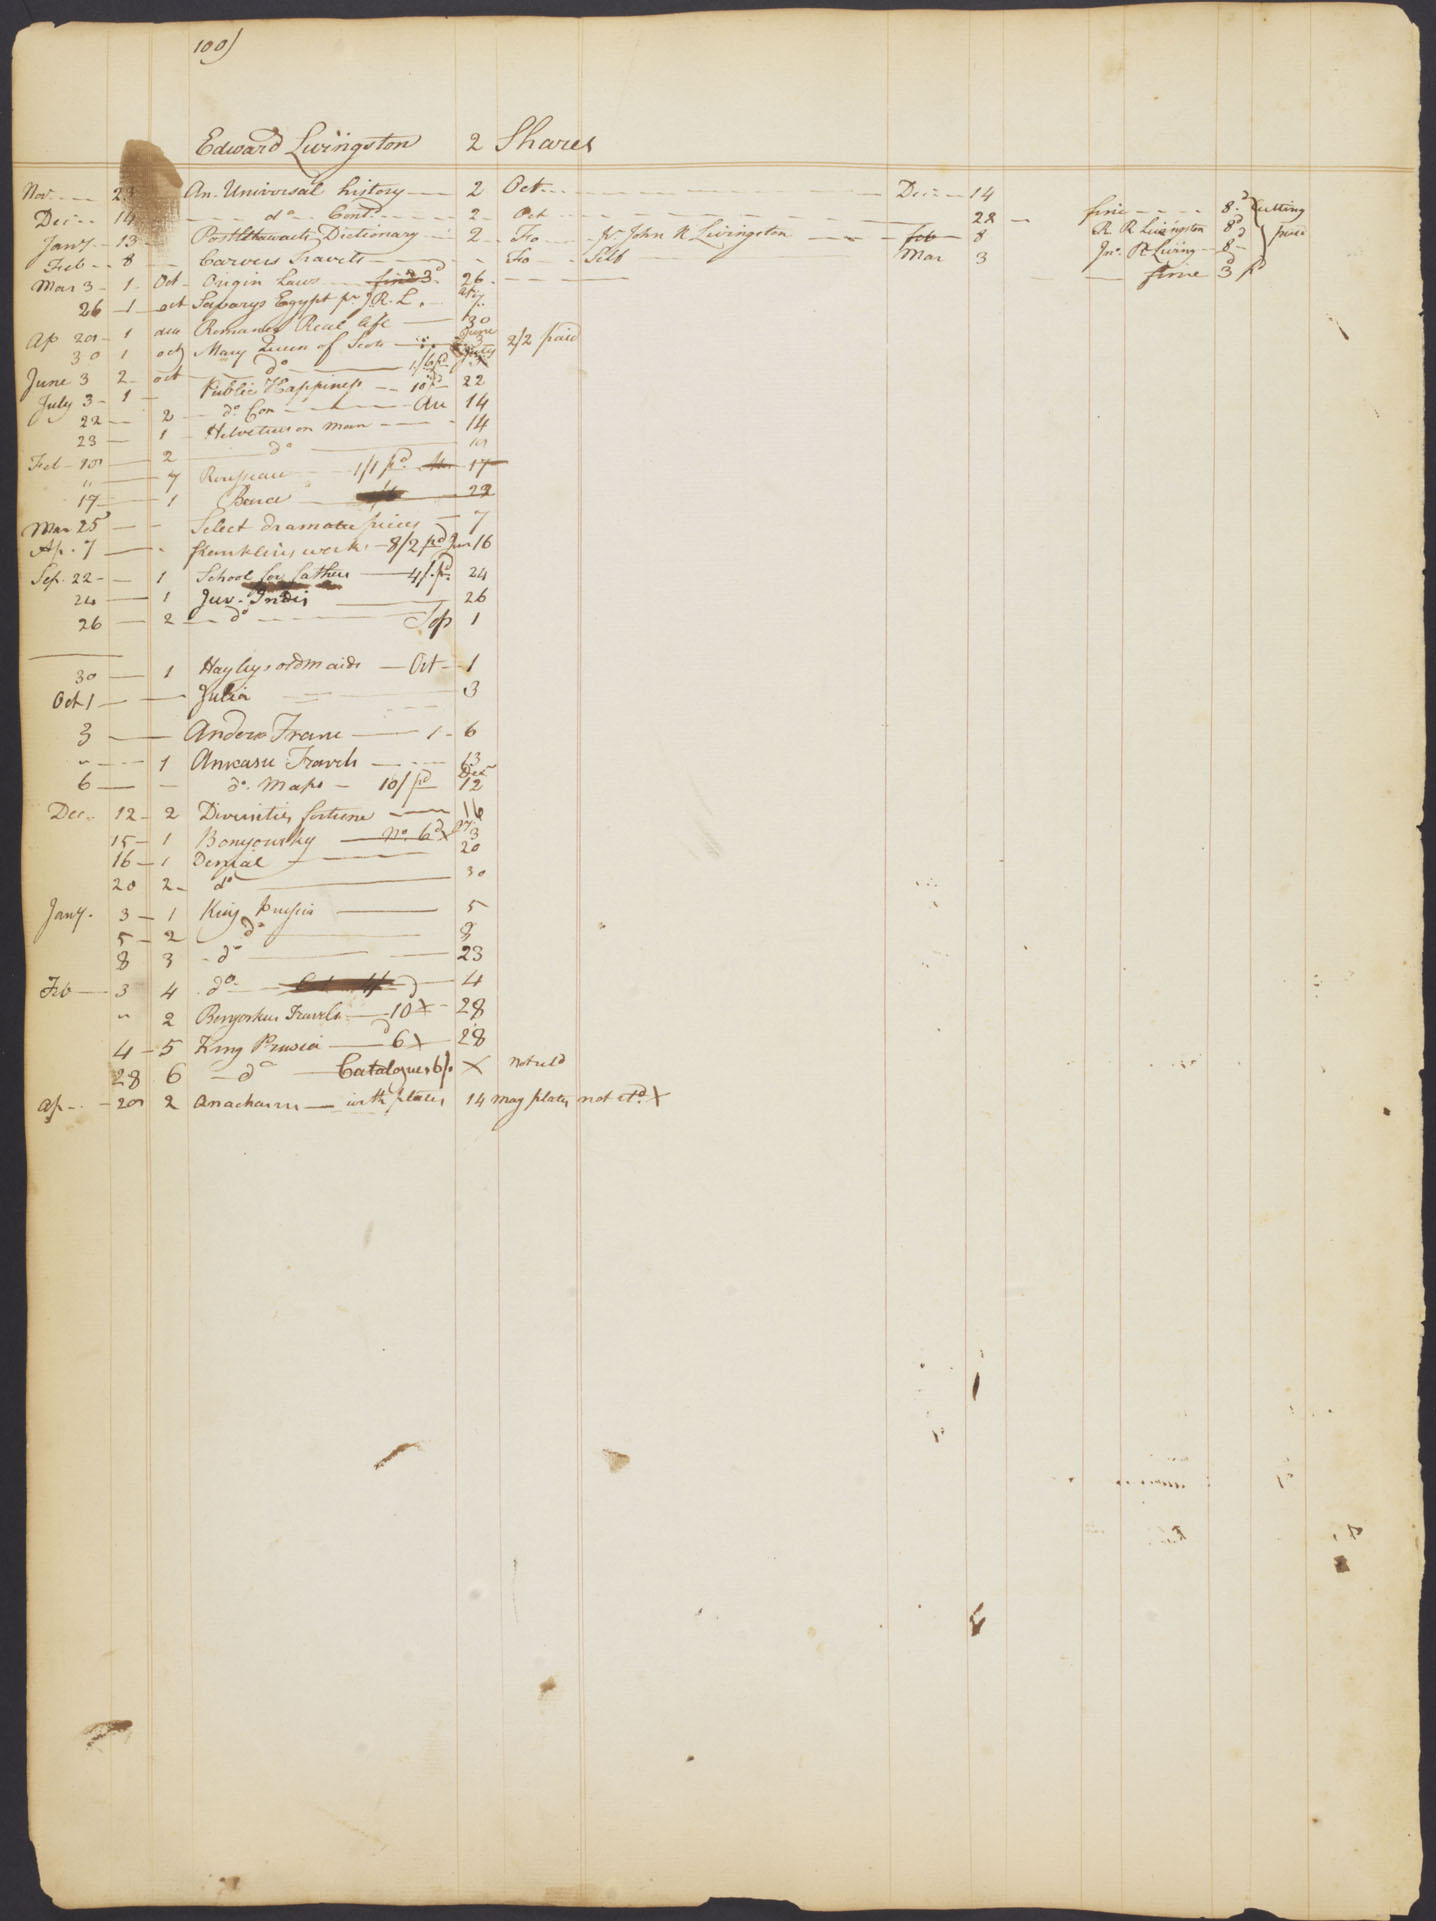 100)
Edward Livingston 2 Shares
Nov 23 An. Universal history 2 Oct Dec 14
Dec 14 do Contd 2 Oct 28 fine 8d Cutting
Jany 13 Postlethwaits Dictionary 2 Fo pr John R Livingston feb 8 R R Livingston 8d paid
Feb 8 Carvers Travels Fo Self Mar 3 Jno. R Living 8
Mar 3 1 Oct Origin Laws fine 3d 26 fine 3d pd
26 1 oct Savarys Egypt pr J R. L. 7
Ap 20 1 duo Romance Real life 30
30 1 oct Mary Queen of Scots June 3 2/2 paid
June 3 2 oct do 1/6 pd July
July 3 1 Public Happiness 10d 22
22 2 do Con Au 14
23 1 Helvetius on man 14
Feb 10 2 do 10
" 7 Rousseau 1/1 pd 17
17 1 Bruce 22
Mar 25 Select dramatic pieces 7
Ap. 7 franklins works 8/2 pd Jun 16
Sep. 22 1 School for fathers 4/ pd 24
24 1 Juv. Indis 26
26 2 do Sep 1
30 1 Hayleys old maids Oct 1
Oct 1 Julia 3
3 Anders France 1 6
" 1 Travels 13
6 do Maps 10/ pd Dec 12
Dec. 12 2 Diversities fortune 16
15 1 Bonyousky No. 6d X 3
16 1 Denial 20
20 2 do 30
Jany. 3 1 King prussia 5
5 2 do 8
8 3 do 23
Feb 3 4 do 4
" 2 Benyorskus Travels 10 X 28
4 5 King Prusia 6d X 28
28 6 do Catalogues 6/ X not retd
Ap 20 2 Anacharsis with plates 14 may plates not rtd. X